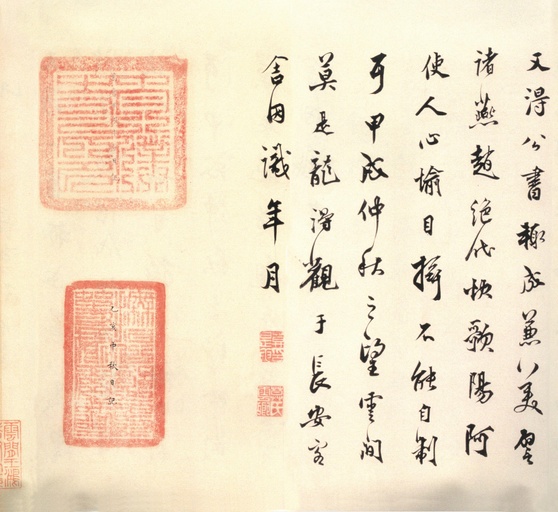 又得公書輙成兼美譬
諸燕趙絕代歌陽阿
使人心愉目搖不能自制
耳甲戌仲秋之望雲間
莫是龍得觀于長安客
舍因識年月